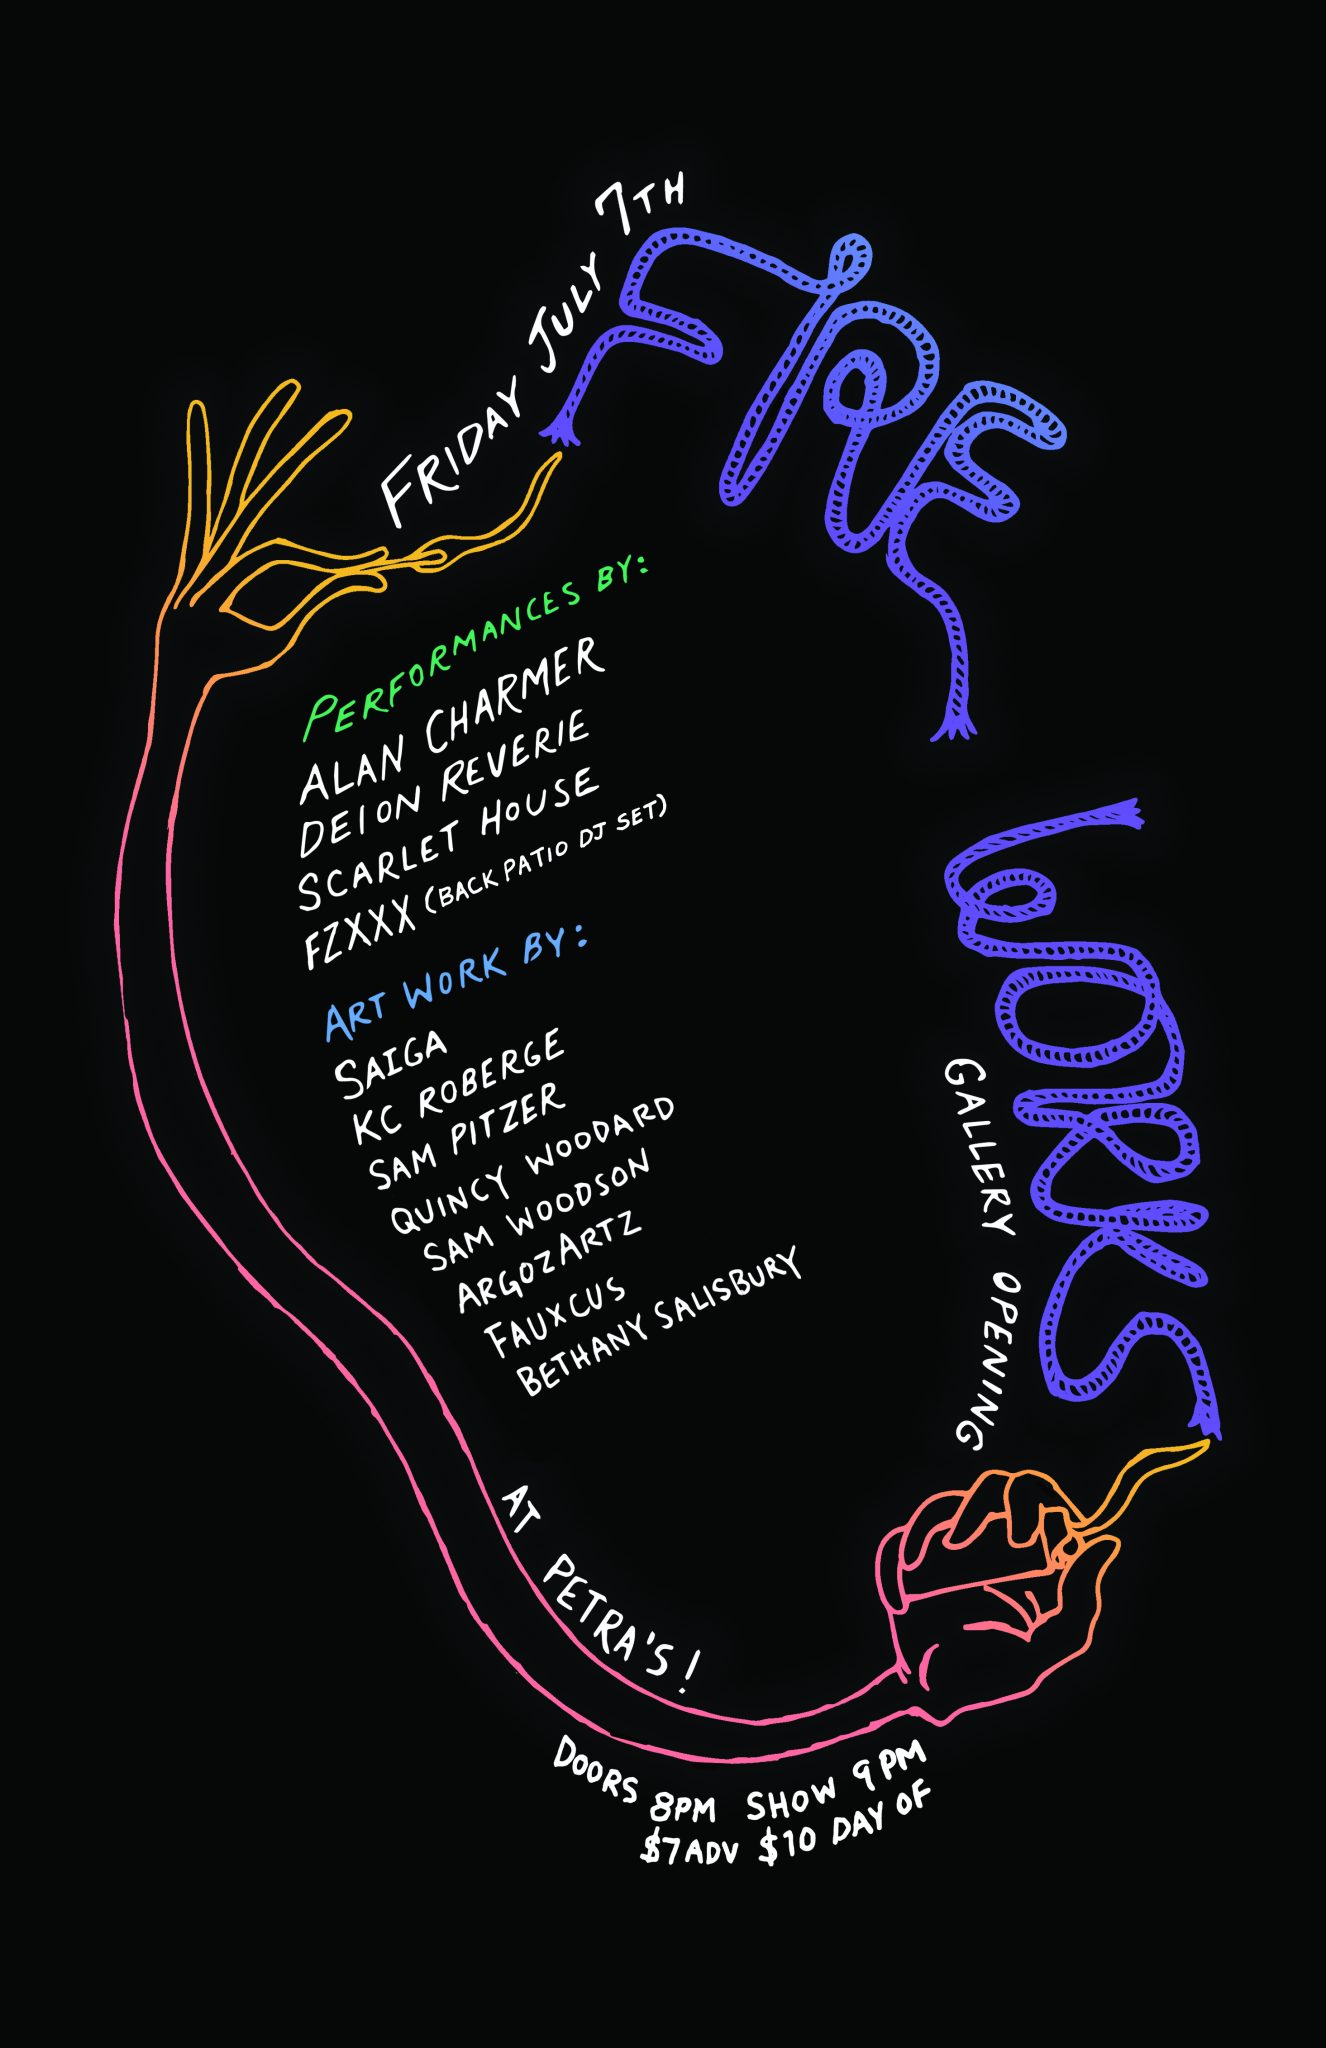 FRIDAY JULY 7TH
FIRE
WORKS
GALLERY OPENING
PERFORMANCES BY:
ALAN CHARMER
DEION REVERIE
SCARLET HOUSE
FZXXX (BACK PATIO DJ SET)
ART WORK BY:
SAIGA
KC ROBERGE
SAM PITZER
QUINCY WOODARD
SAM WOODSON
ARGOZARTZ
FAUXCUS
BETHANY SALISBURY
AT PETRA'S!
DOORS 8PM SHOW 9PM
$7ADV $10 DAY OF